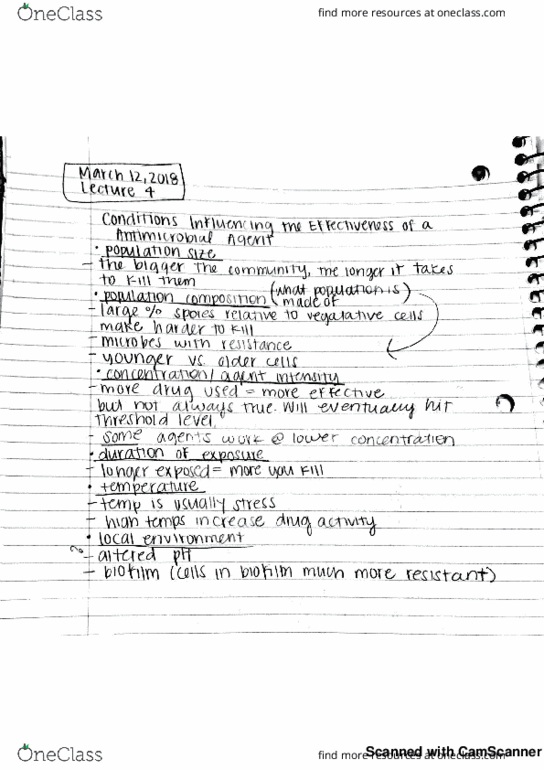 OneClass
find more resources at oneclass.com
March 12, 2018
Lecture 4
Conditions Influencing the Effectiveness of a
Antimicrobial Agent
• population size
- the bigger the community, the longer it takes
to kill them
• population composition (what population is made of)
- large % spores relative to vegatative cells
make harder to kill
- microbes with resistance
- younger vs. older cells
• concentration/agent intensity
- more drug used = more effective
but not always true. Will eventually hit
threshold level.
- some agents work @ lower concentration
• duration of exposure
- longer exposed = more you kill
• temperature
- temp is usually stress
- high temps increase drug activity
• local environment
- altered pH
- biofilm (cells in biofilm much more resistant)
OneClass
find more resources at oneclass.com
Scanned with CamScanner